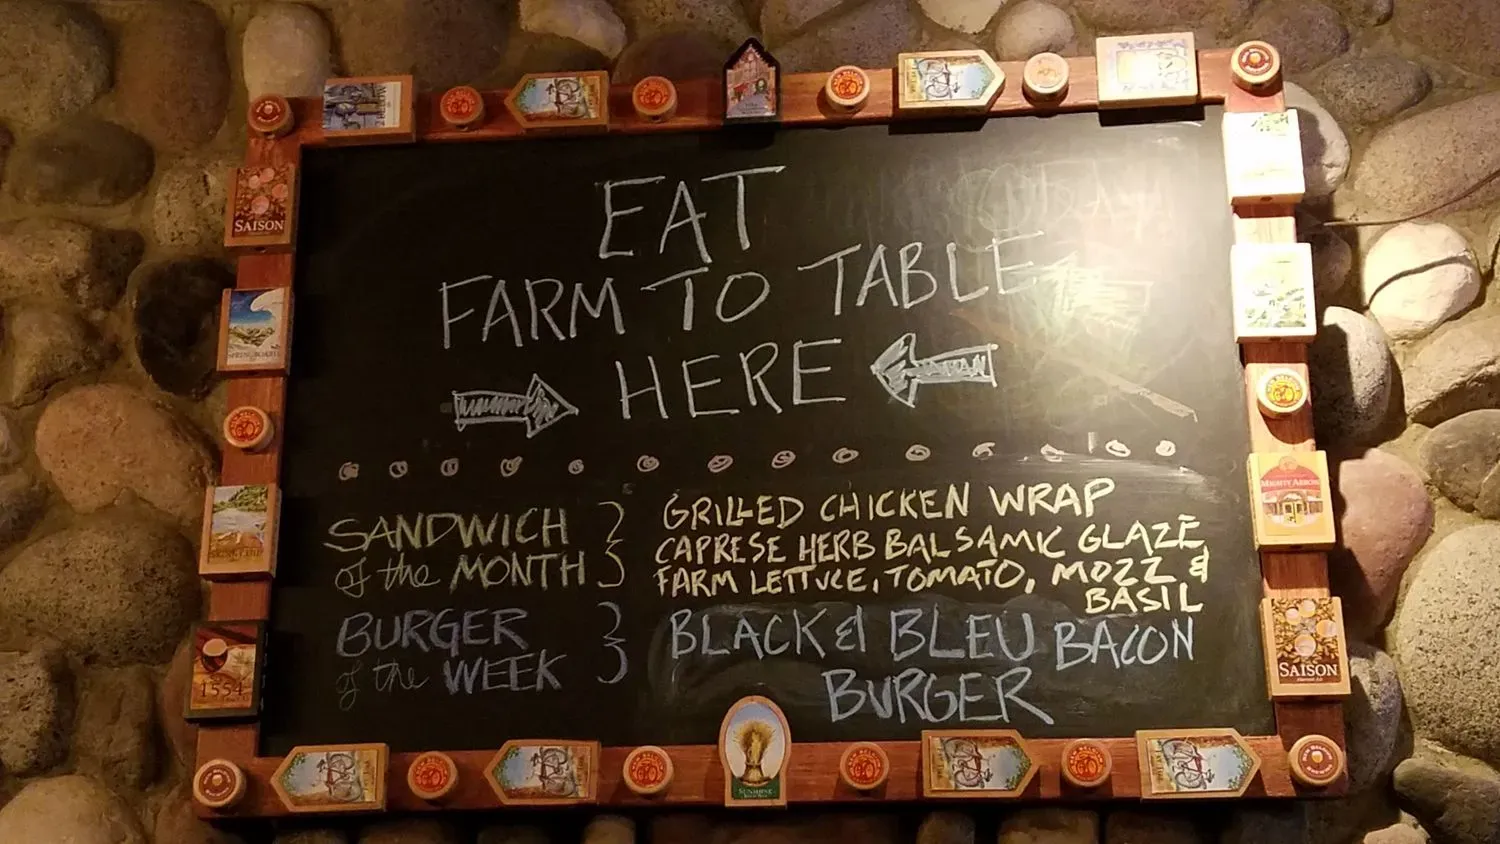 EAT
FARM TO TABLE
HERE
SANDWICH
of the MONTH
GRILLED CHICKEN WRAP
CAPRESE HERB BALSAMIC GLAZE
FARM LETTUCE, TOMATO, MOZZ &
BASIL
BURGER
of the WEEK
BLACK & BLEU BACON
BURGER
SAISON
1554
MIGHTY ARROW
SAISON
SUNSHINE